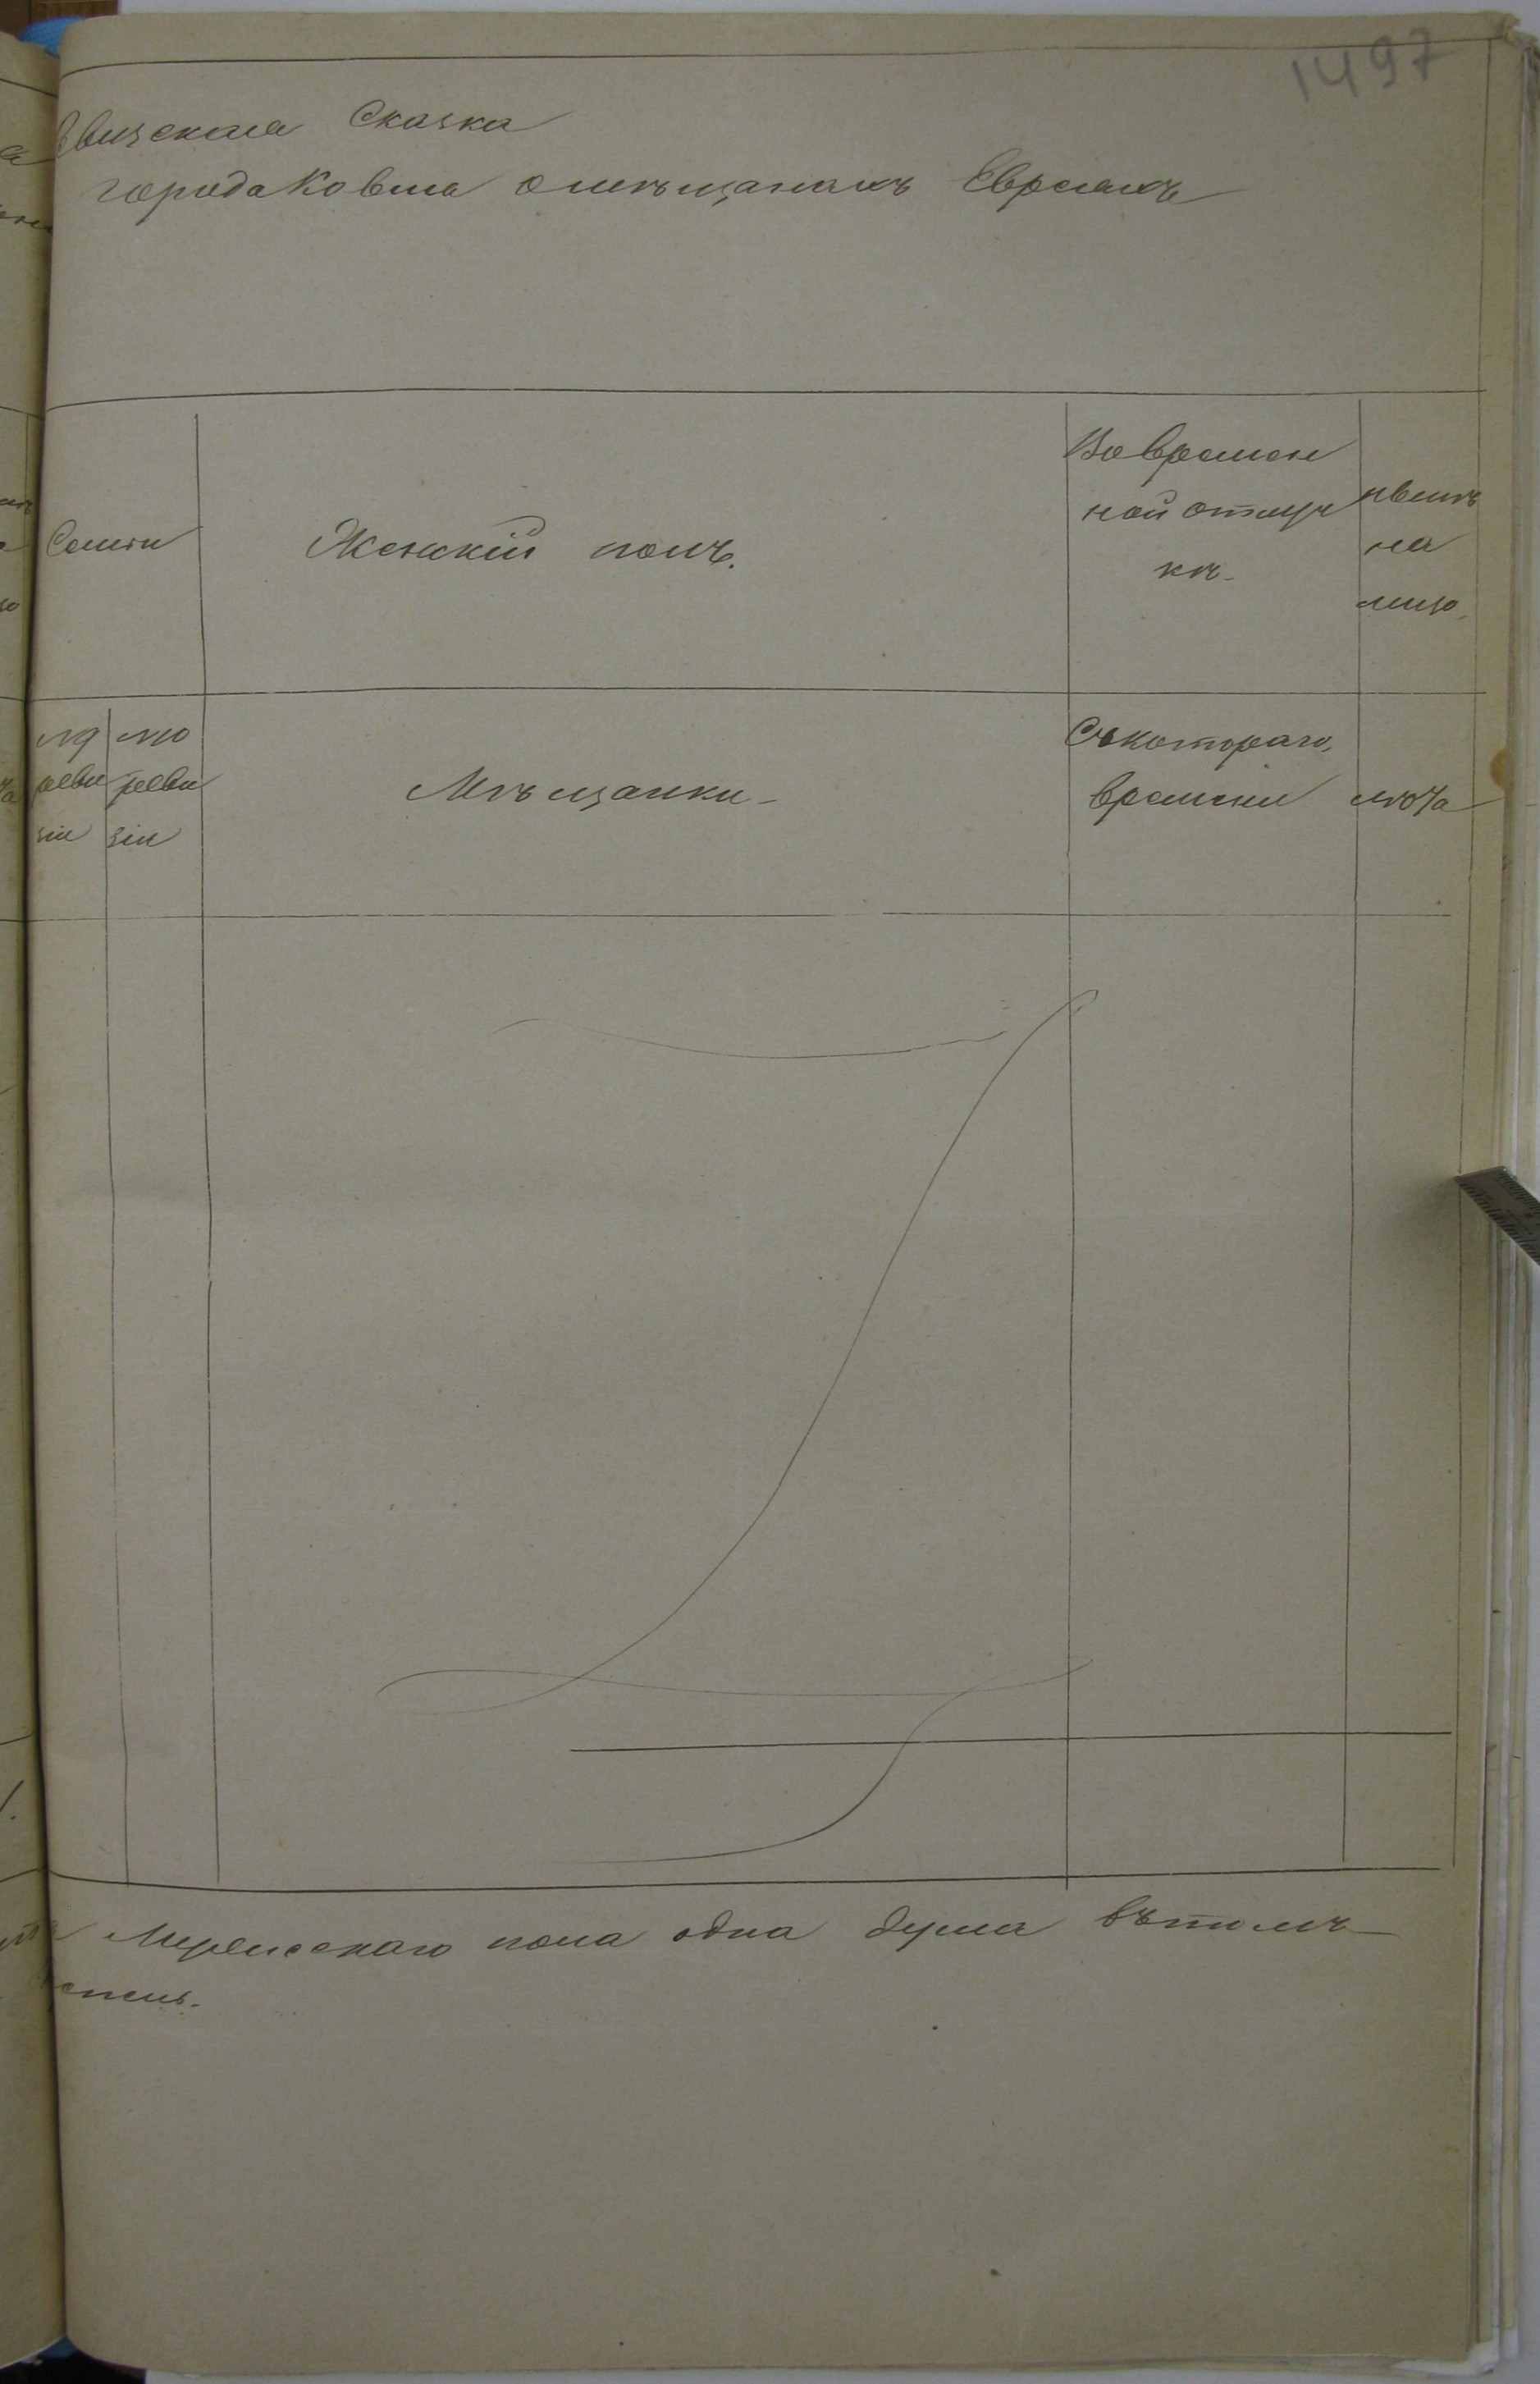 1497
евизская Сказка
города Ковна омѣщанахъ Евреяхъ
Семьи
Женскій полъ.
Во времен
ной отлуч
кѣ
нынѣ
на
лицо
№9
реви
зіи
№10
реви
зіи
Мѣщанки
Съ котораго
времени
лѣта
Мужескаго пола одна душа вътомъ